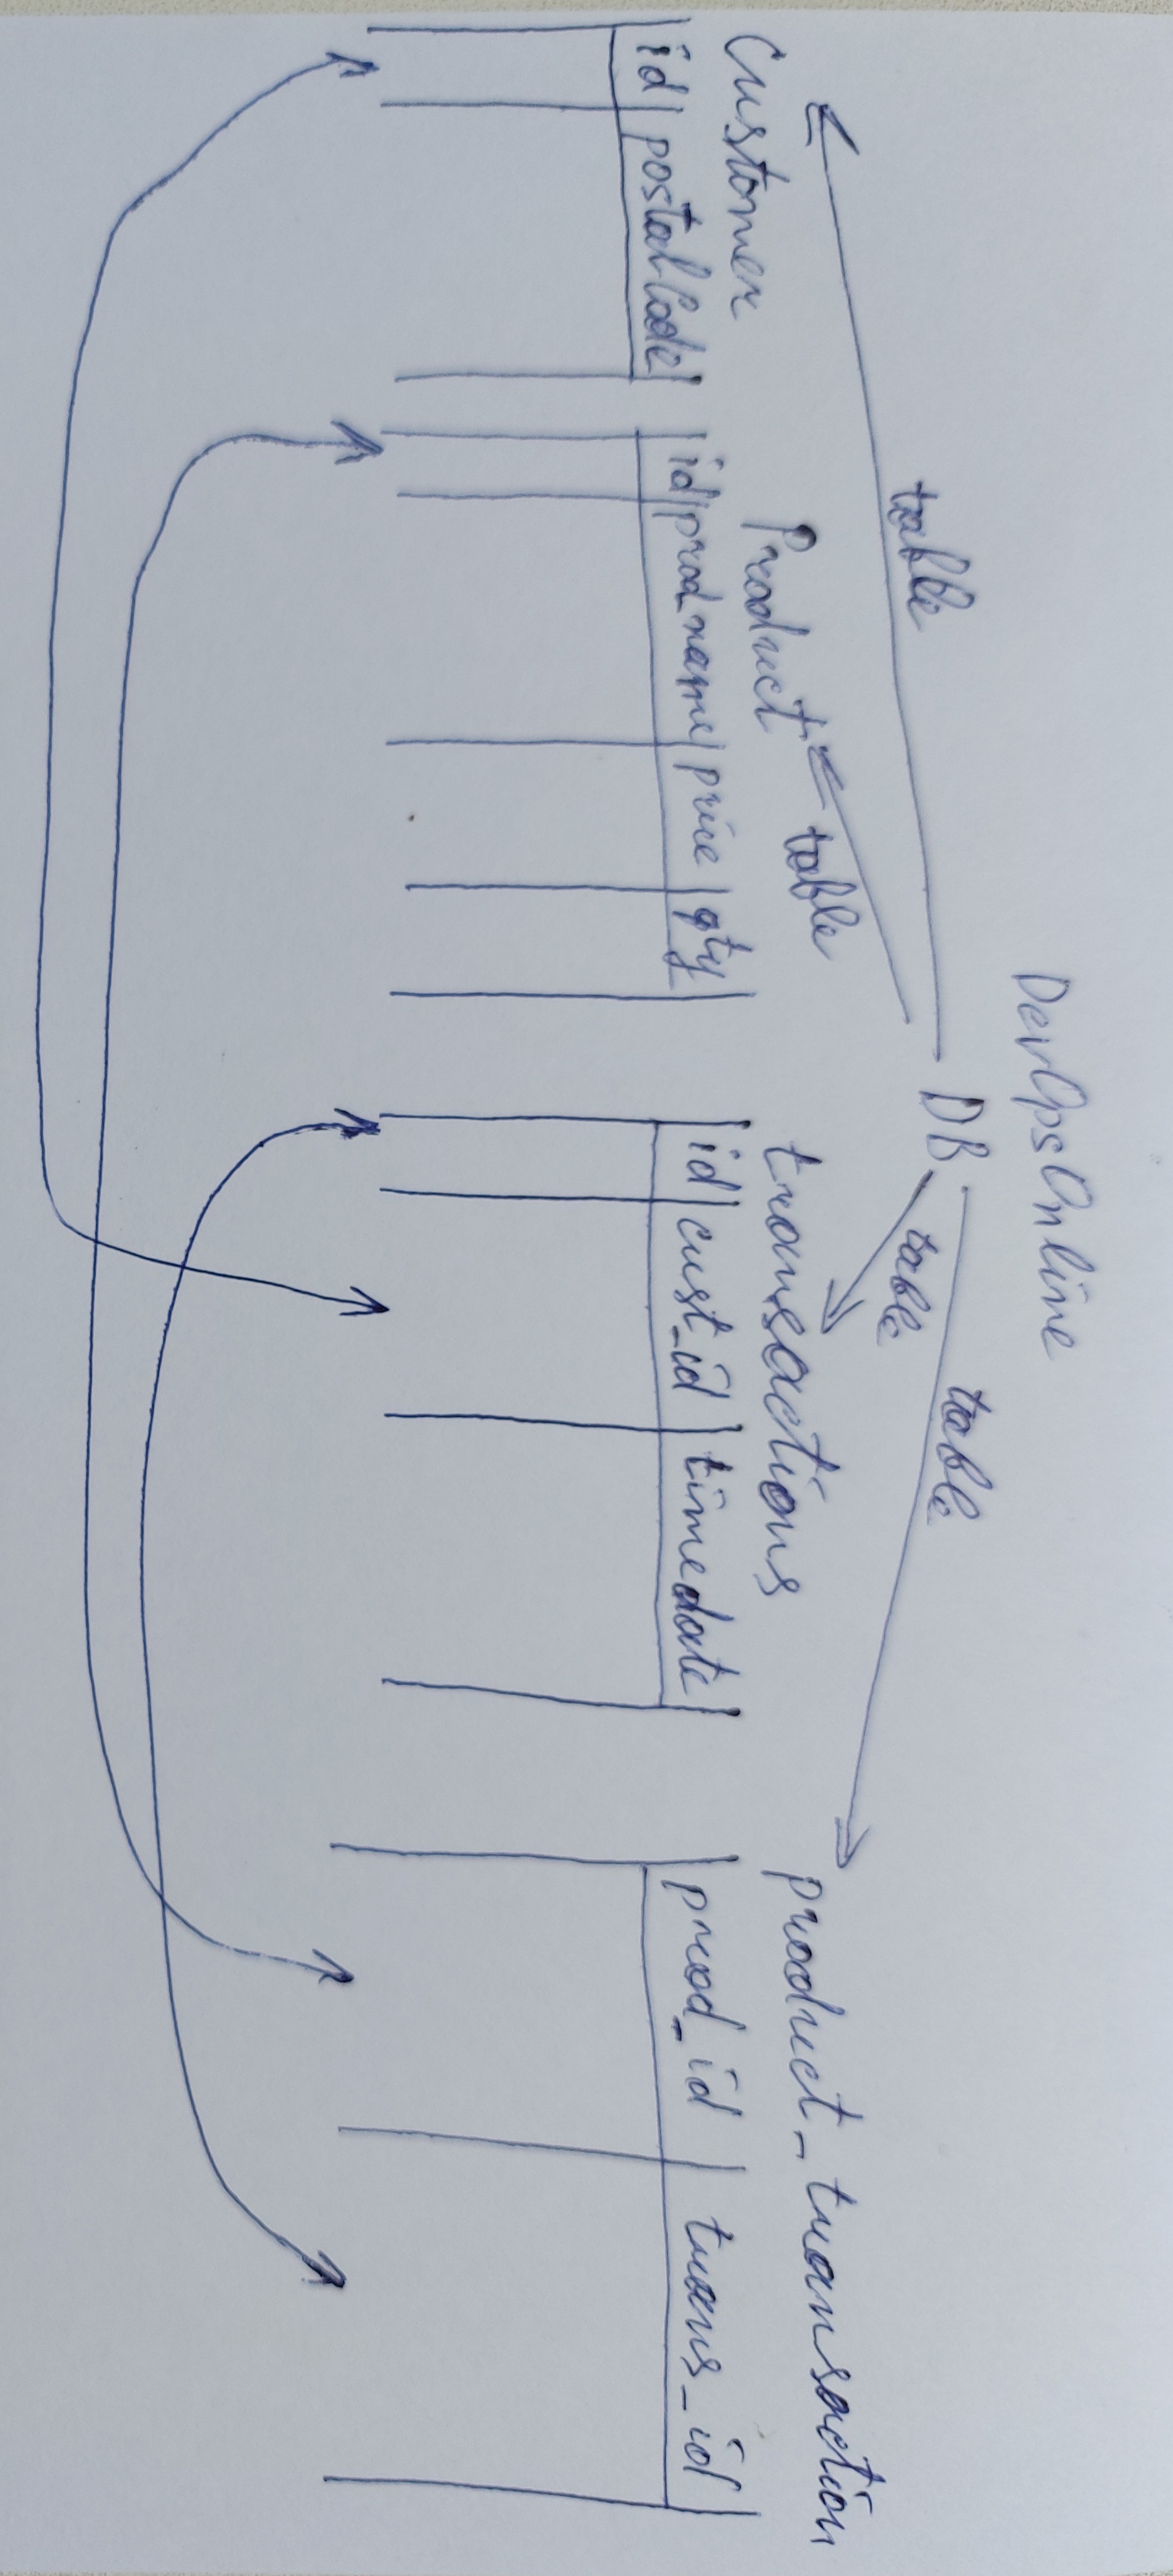 DevOpsOnline
DB
table
table
table
table
Customer
id postalCode
Product
id prod_name price qty
transactions
id cust_id timedate
product_transaction
prod_id trans_id